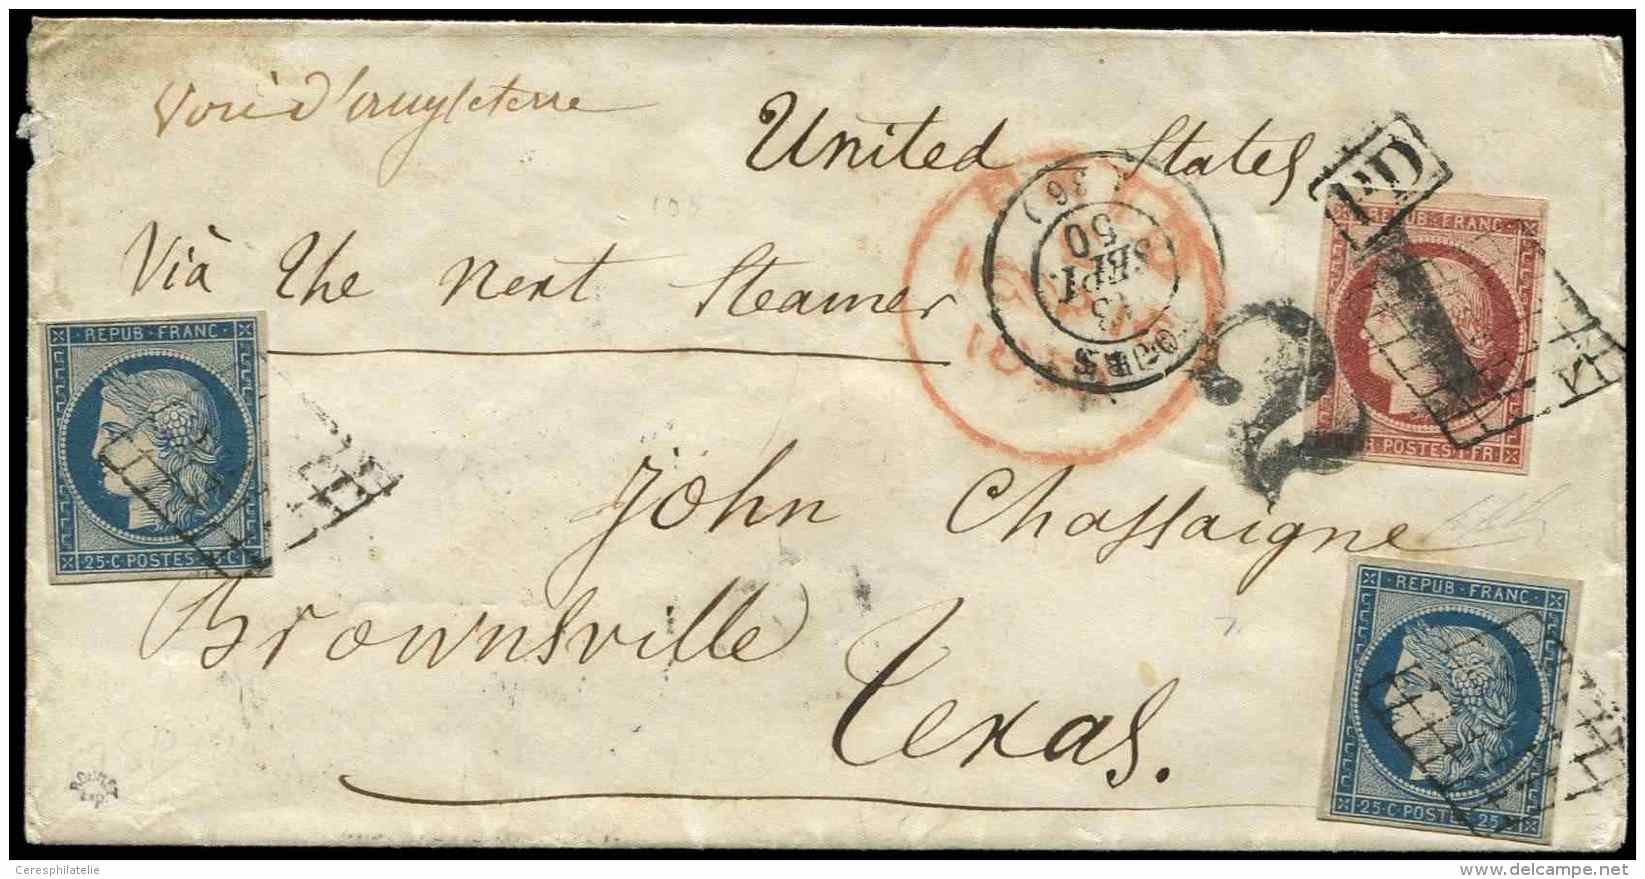 Voie d'angleterre
United States
PD
Via the next Steamer
TOURS
13
SEPT.
50
(36)
REPUB·FRANC·
POSTES 1 FR
REPUB·FRANC·
25·C·POSTES
John Chassaigne
Brownsville
Texas.
REPUB·FRANC·
25·C·POSTES·25·C
Ceresphilatelie
delcampe.net